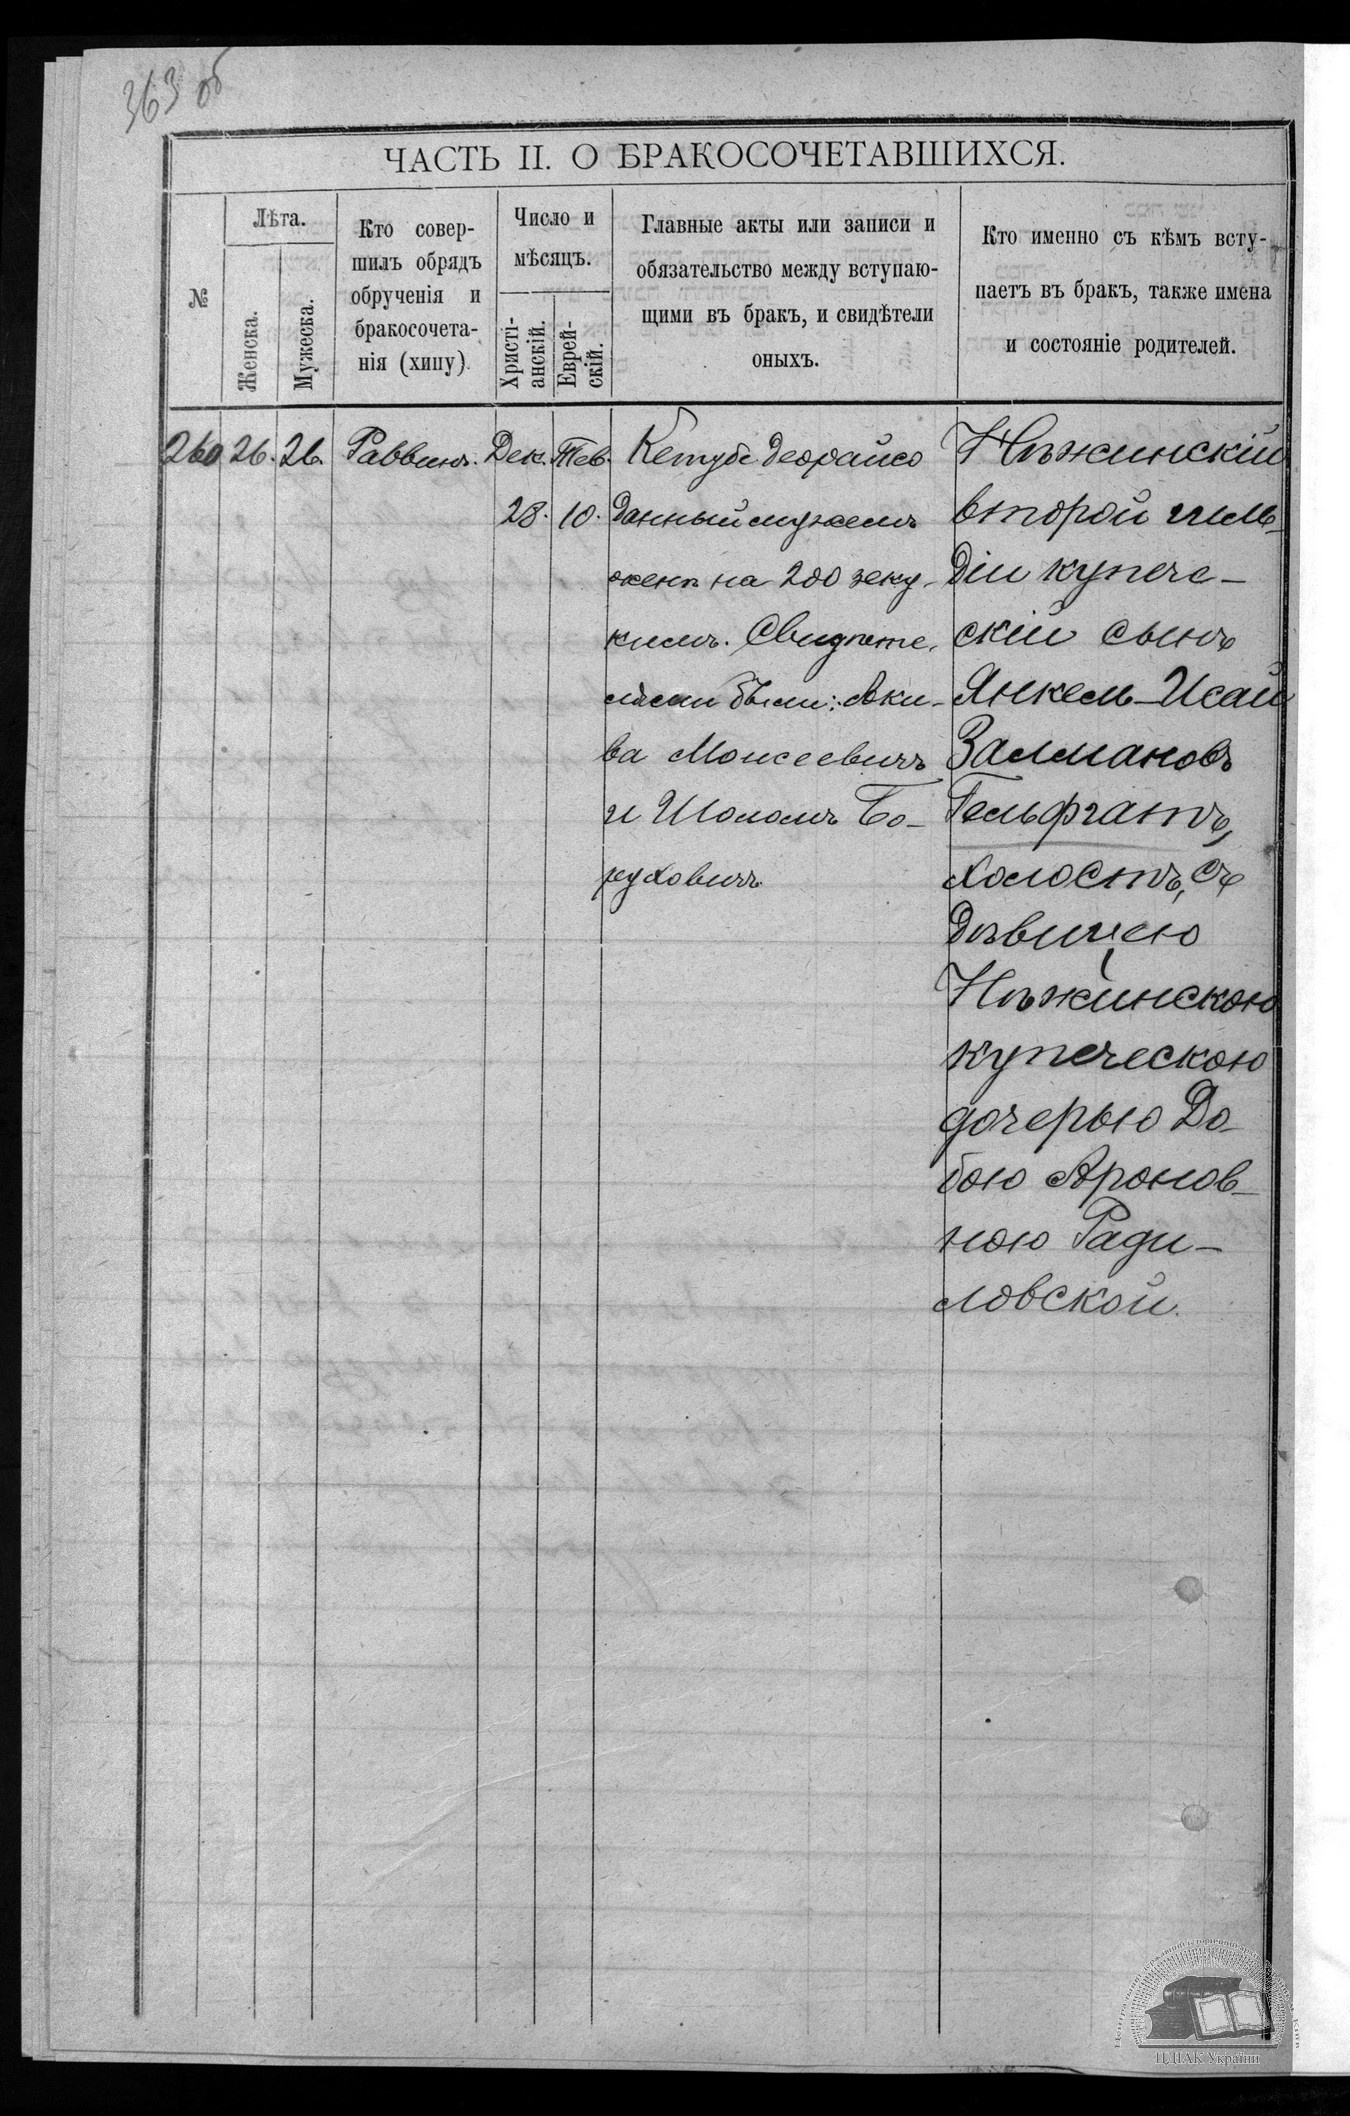 363 об
ЧАСТЬ II. О БРАКОСОЧЕТАВШИХСЯ.
№
Лѣта.
Женска.
Мужеска.
Кто совер-
шилъ обрядъ
обрученія и
бракосочета-
нія (хипу)
Число и
мѣсяцъ.
Христі-
анскій.
Еврей-
скій.
Главные акты или записи и
обязательство между вступаю-
щими въ бракъ, и свидѣтели
оныхъ.
Кто именно съ кѣмъ всту-
паетъ въ бракъ, также имена
и состояніе родителей.
260
26.
26.
Раввинъ.
Дек.
28.
Тев.
10.
Кетубе деорайсо
данный мужемъ
женѣ на 200 зеку-
кимъ. Свидѣте-
лями были: Аки-
ва Моисеевичъ
и Шоломъ Бо-
руховичъ.
Нѣжинскій
второй гиль-
діи купече-
скій сынъ
Янкель-Исай
Залмановъ
Гельфгатъ,
холостъ, съ
дѣвицею
Нѣжинскою
купеческою
дочерью До-
бою Аронов-
ною Ради-
ловской.
ЦДІАК України